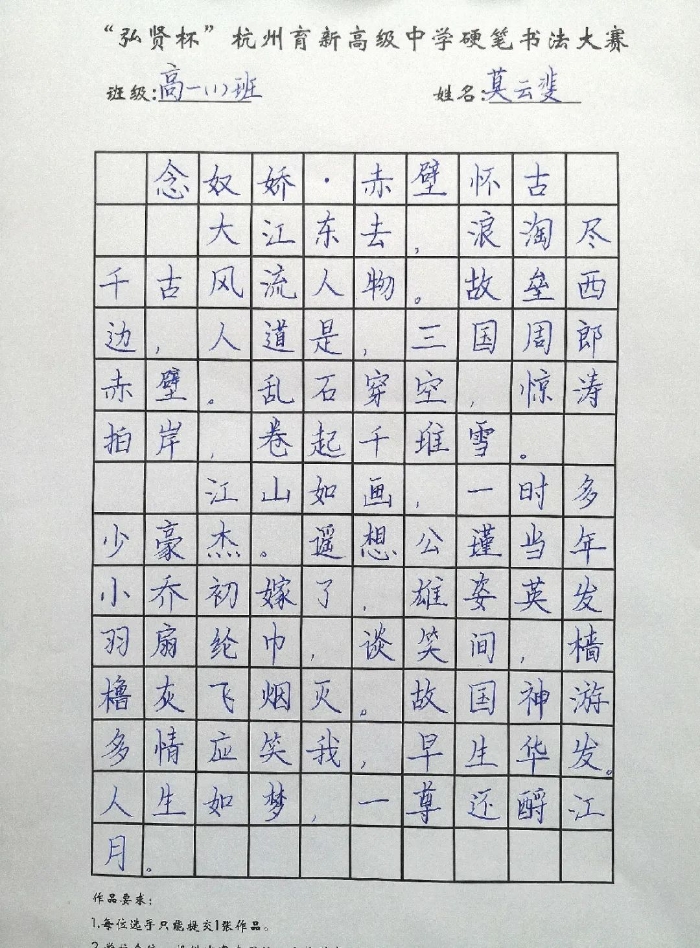 “弘贤杯”杭州育新高级中学硬笔书法大赛
班级:高一(1)班 姓名:莫云斐
念奴娇·赤壁怀古
大江东去,浪淘尽
千古风流人物。故垒西
边,人道是,三国周郎
赤壁。乱石穿空,惊涛
拍岸,卷起千堆雪。
江山如画,一时多
少豪杰。遥想公瑾当年
小乔初嫁了,雄姿英发
羽扇纶巾,谈笑间,樯
橹灰飞烟灭。故国神游
多情应笑我,早生华发。
人生如梦,一尊还酹江
月。
作品要求:
1.每位选手只能提交1张作品。